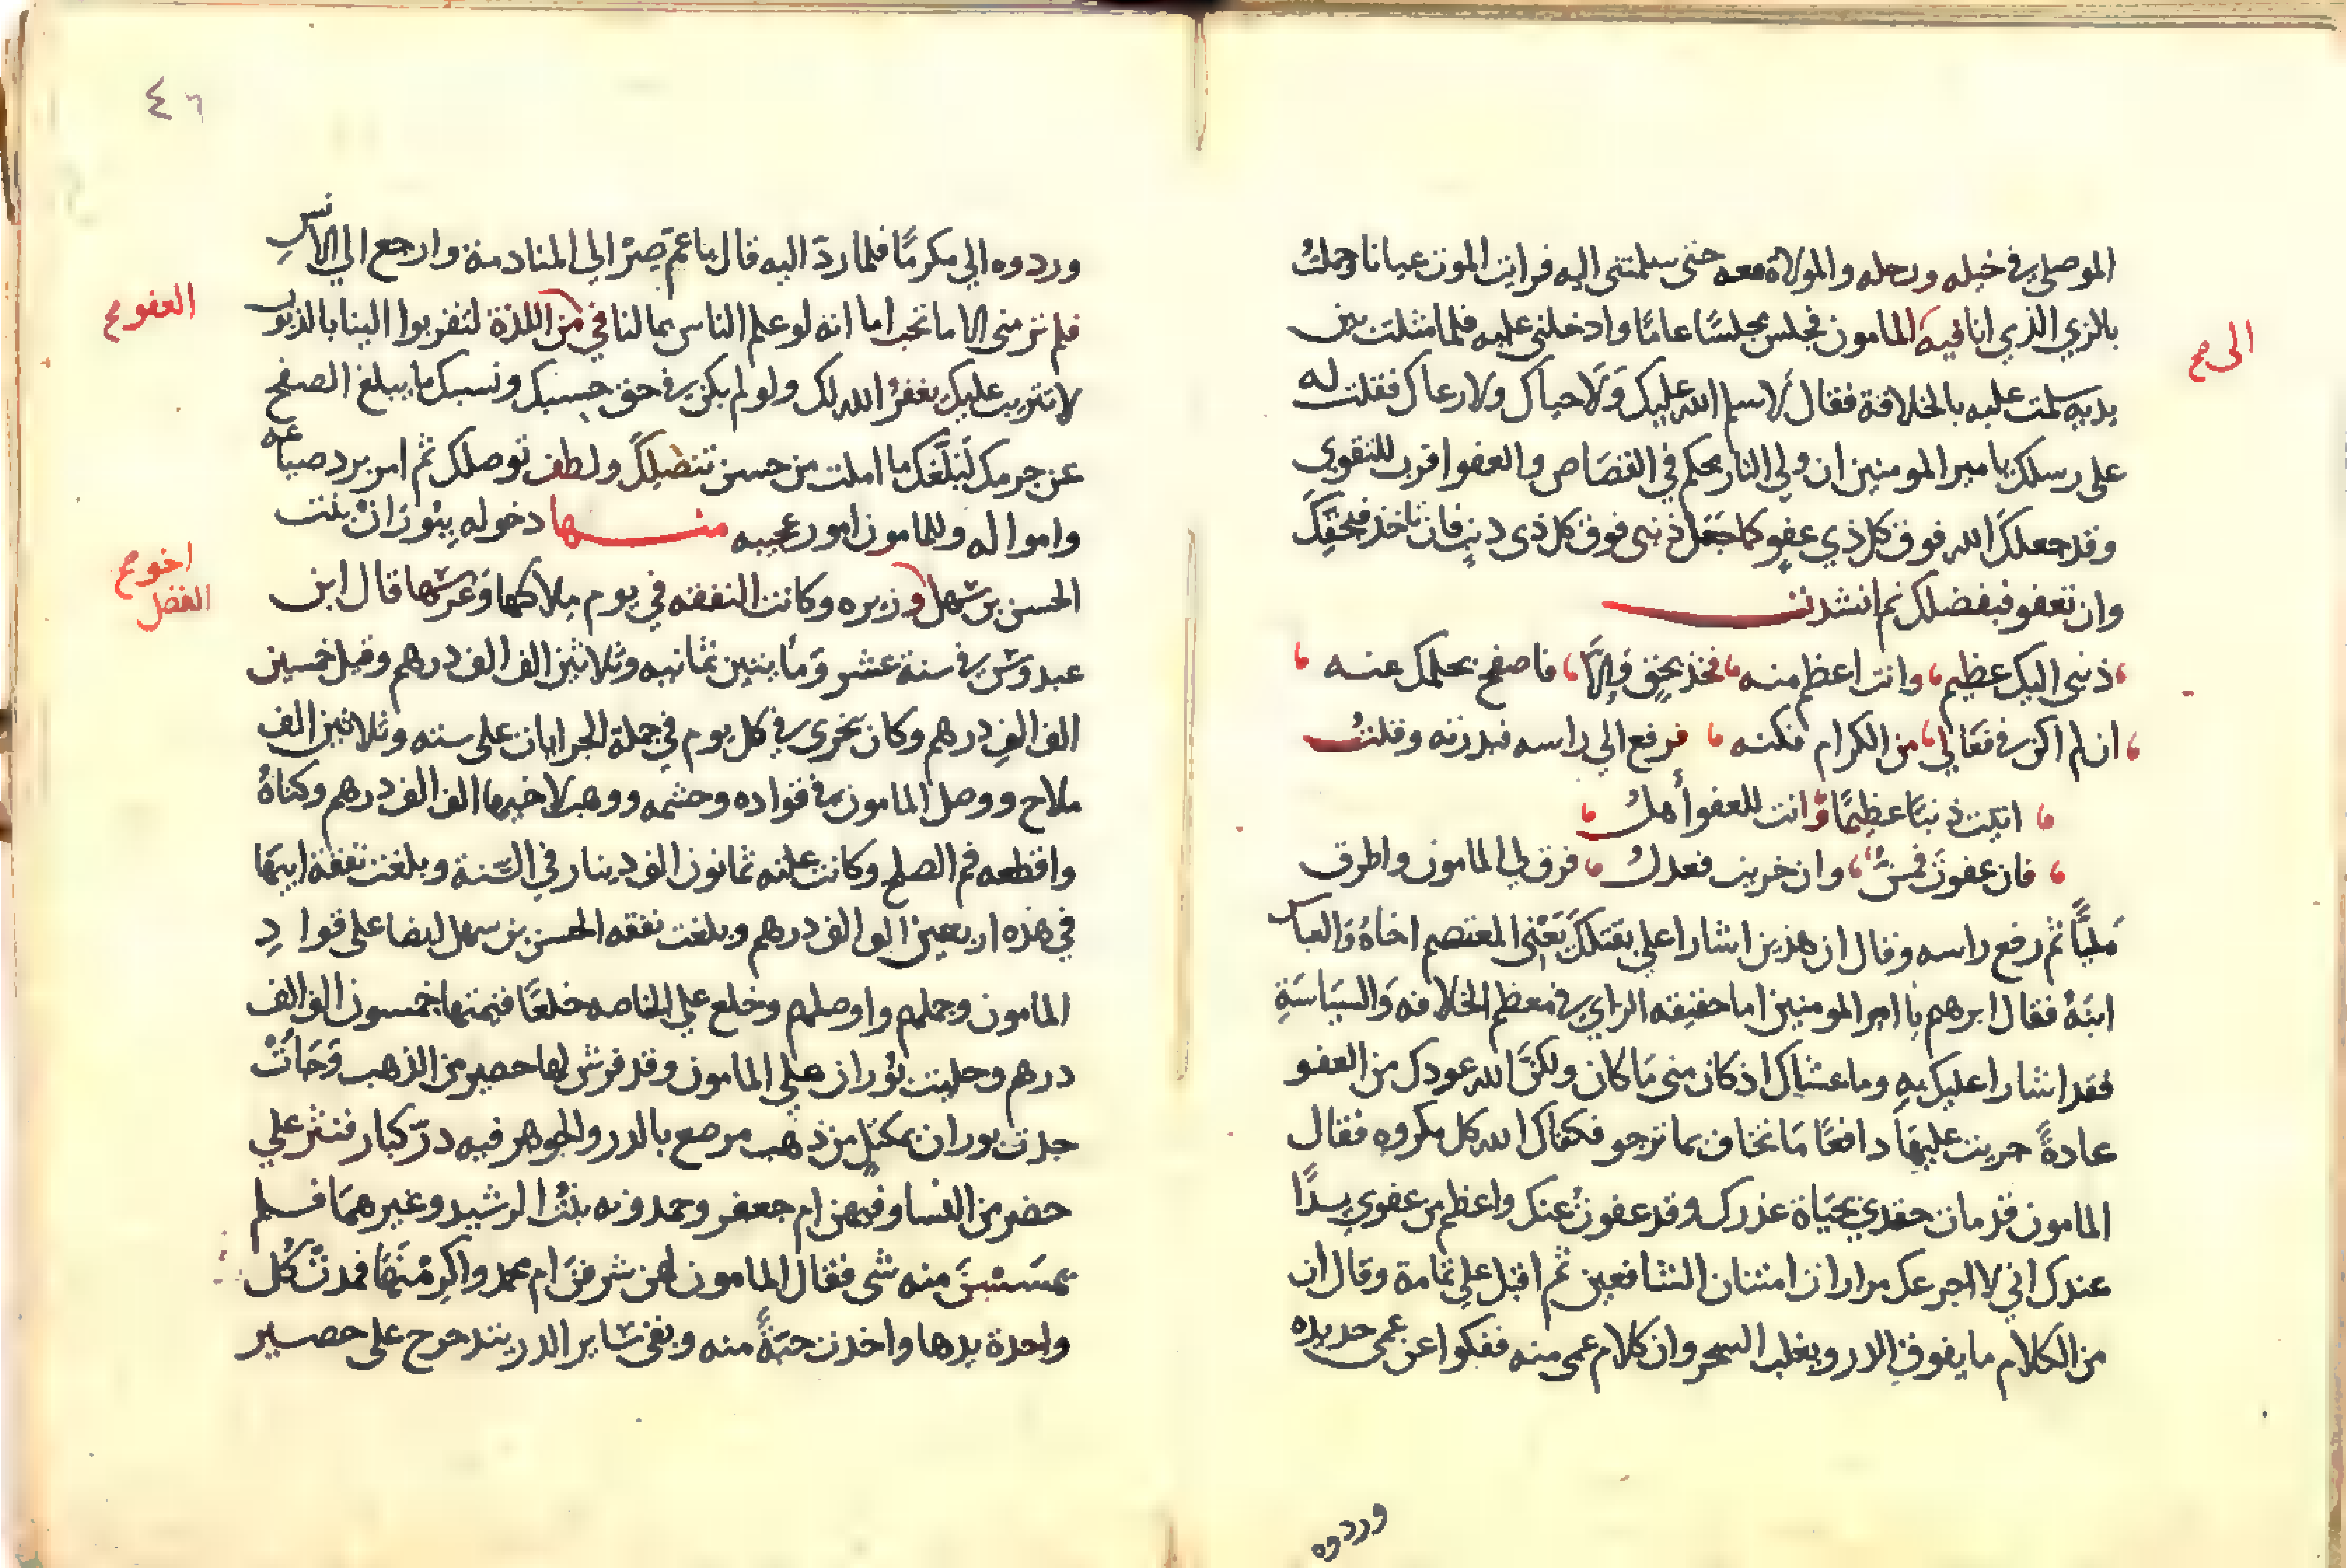 الموصلي في خيله ورجله والمولاة معه حتى سلمتني اليه فرايت الموت عيانا وحملت
بالزي الذي انا فيه الى المامون فجلس مجلسًا عامًا وادخلني عليه فلما مثلت بين
الى صح
يديه سلمت عليه بالخلافة فقال لا سلم الله عليك وَلَا حياك ولا رعاك فقلت له
على رسلك يا امير المومنين ان ولي الثار محكم في القصَاص والعفو اقرب للتقوي
وقد جعلك الله فوق كل ذي عفوٍ كما جَعَل ذنبي فوق كل ذي ذنبٍ فان تاخذ فبحقِّكَ
وان تعفو فبفضلك ثم انشدت
ذنبي اليك عظيم وانت اعظم منه فخذ بحقٍ وَإلَّا فاصفح بحلمك عنه
ان لم اكن في فعَالي من الكرام فكنه فرفع الي راسه فبدرته وقلتُ
اتيت ذنبًا عظيمًا وَانت للعفو أهلُ
فان عفوتَ فمنٌّ وان جزيت فعدلُ فرق لي المامون واطرق
مَليًّا ثم رفع راسه وقال ان هذين اشارا علي بقتلكَ يَعْني المعتصم اخاهُ وَالعباس
ابنَهُ فقال ابرهيم يا امير المومنين اما حقيقه الراي في معظم الخلافه وَالسيَاسَةِ
فقد اشارا عليك بهِ وما غشاك اذ كان مني مَا كان ولكنَّ الله عودك من العفو
عادةً جريت عليهَا دافعًا مَا تخاف بما ترجو فكفاك الله كل مكروهٍ فقال
المامون قد مات حقدي بحيَاة عذرك وقد عفوتُ عنك واعظم من عفوي يدًا
عندك اني لا اجرعك مرارات امتنان الشافعين ثم اقبل علي ثمامة وقال ان
من الكلام ما يفوق الدر ويغلب السحر وان كلام عمي منه ففكوا عن عمي حديده
وردوه
٤٦
وردوه الي مكرمًا فلما ردّ اليه قال يا عمّ صِرْ الي المنادمة وارجع الي الانس
فلم تر مني الا ما تحب اما انه لو علم الناس بما لنا في من اللذة لتقربوا الينا بالذنوب
العفو صح
لا تثريب عليك يغفرُ الله لك ولو لم يكن في حق حسبك ونسبك ما يبلغ الصفح
عن جرمك لَبَلَّغَك ما املت من حسن تنصلِكَ ولطف توصلك ثم امر برد صياعه
واموا له وللمامون امور عجيبه منهـا دخوله بِبُورَانْ بنت
الحسن بن سَهل وزيره وكانت النفقه في يوم ملاكها وَعُرسها قال ابن
اخو صح
الفضل
عبدوسَ في سنة عشر وَمأيتين ثمانيه وثلاثين الف الف درهم وقيل خمسين
الف الفِ درهم وكان يَجرى في كل يوم في جملة الجرايات على سته وثلاثين الف
ملاح ووصل المامون في قواده وحشمه ووهب لاخيها الف الف درهم وكناهُ
واقطعه فم الصلح وكانت غلته ثمانون الف دينار في السّنة وبلغت نفقة ابيهَا
في هذه اربعين الف الف درهم وبلغت نفقه الحسن بن سهل ايضا على قوا دِ
المامون وجملهم واوصلهم وخلع علي الخاصه خلعًا قيمتها خمسون الف الف
درهم وجليت بُوران علي المامون وقد فرش لها حصير من الذهب وَجَاَتْ
جدت بوران بمكتلٍ من ذهب مرصع بالدر والجوهر فيه درّ كبار فنثر علي
حضر من النسا وفيهن ام جعفر وحمدونه بنتُ الرشيد وغيرهمَا فلم
يمسَسْنَ منه شى فقال المامون لهن شرفنَ ام محمد واكرِمْنَهَا فمدتْ كُل
واحدة يدها واخدت حبَةً منه وبقى سَاير الدر يتدحرج على حصير